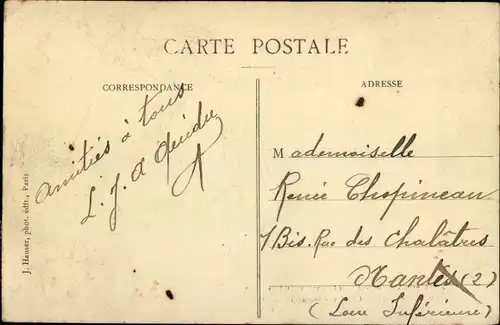 CARTE POSTALE
CORRESPONDANCE
amitiés à tous
L. J. A
J. Hauser, phot. édit., Paris
ADRESSE
Mademoiselle
Renée Chopineau
1 Bis. Rue des Chalâtres
Nantes (2)
(Loire Inférieure)